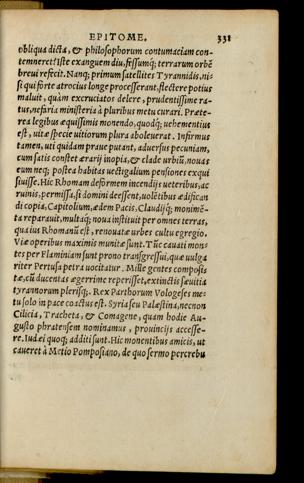 EPITOME. 331
obliqua dicta, & philosophorum contumaciam con-
temneret? Iste exanguem diu, fessumq; terrarum orbē
breui refecit. Nanq; primum satellites Tyrannidis, ni-
si qui forte atrocius longe processerant, flectere potius
maluit, quàm excruciatos delere, prudentissime ra-
tus, nefaria ministeria à pluribus metu curari. Præte-
rea legibus æquissimis monendo, quodq; uehementius
est, uitæ specie uitiorum plura aboleuerat. Infirmus
tamen, uti quidam praue putant, aduersus pecuniam,
cum satis constet ærarij inopia, & clade urbiū, nouas
eum neq; postea habitas uectigalium pensiones exqui
siuisse. Hic Rhomam deformem incendijs ueteribus, ac
ruinis, permissa, si domini deessent, uolētibus ædifican
di copia, Capitolium, ædem Pacis, Claudijq; monimē-
ta reparauit, multaq; noua instituit per omnes terras,
qua ius Rhomanū est, renouatæ urbes cultu egregio.
Viæ operibus maximis munitæ sunt. Tūc cauati mon-
tes per Flaminiam sunt prono transgressui, quæ uulga
riter Pertusa petra uocitatur. Mille gentes composi-
tæ, cū ducentas ægerrime reperisset, extinctis sæuitia
tyrannorum plerisq;. Rex Parthorum Vologeses me-
tu solo in pace coactus est. Syria seu Palæstina, necnon
Cilicia, Tracheta, & Comagene, quam hodie Au-
gusto phratensem nominamus, prouincijs accesse-
re. Iudæi quoq; additi sunt. Hic monentibus amicis, ut
caueret à Metio Pomposiano, de quo sermo percrebu